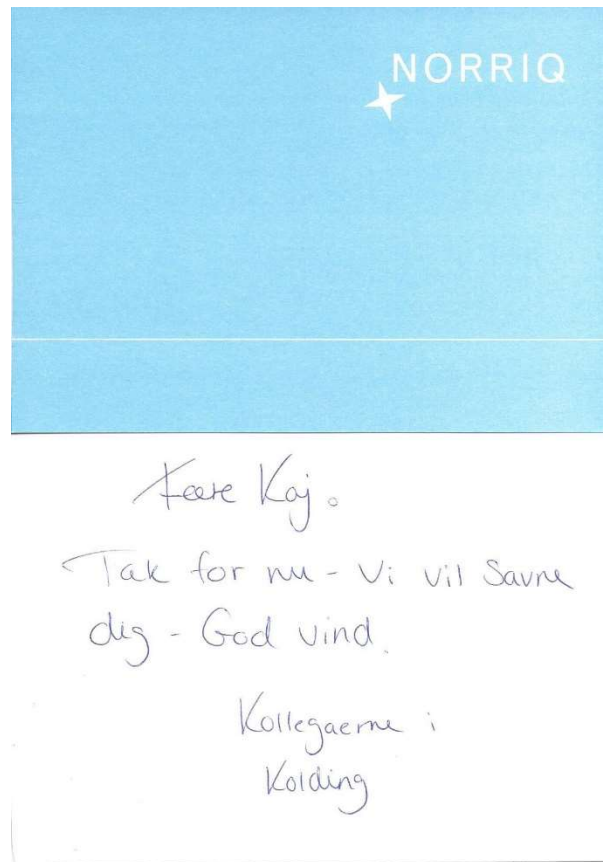 NORRIQ
Kære Kaj.
Tak for nu - Vi vil Savne
dig - God vind.
Kollegaerne i
Kolding